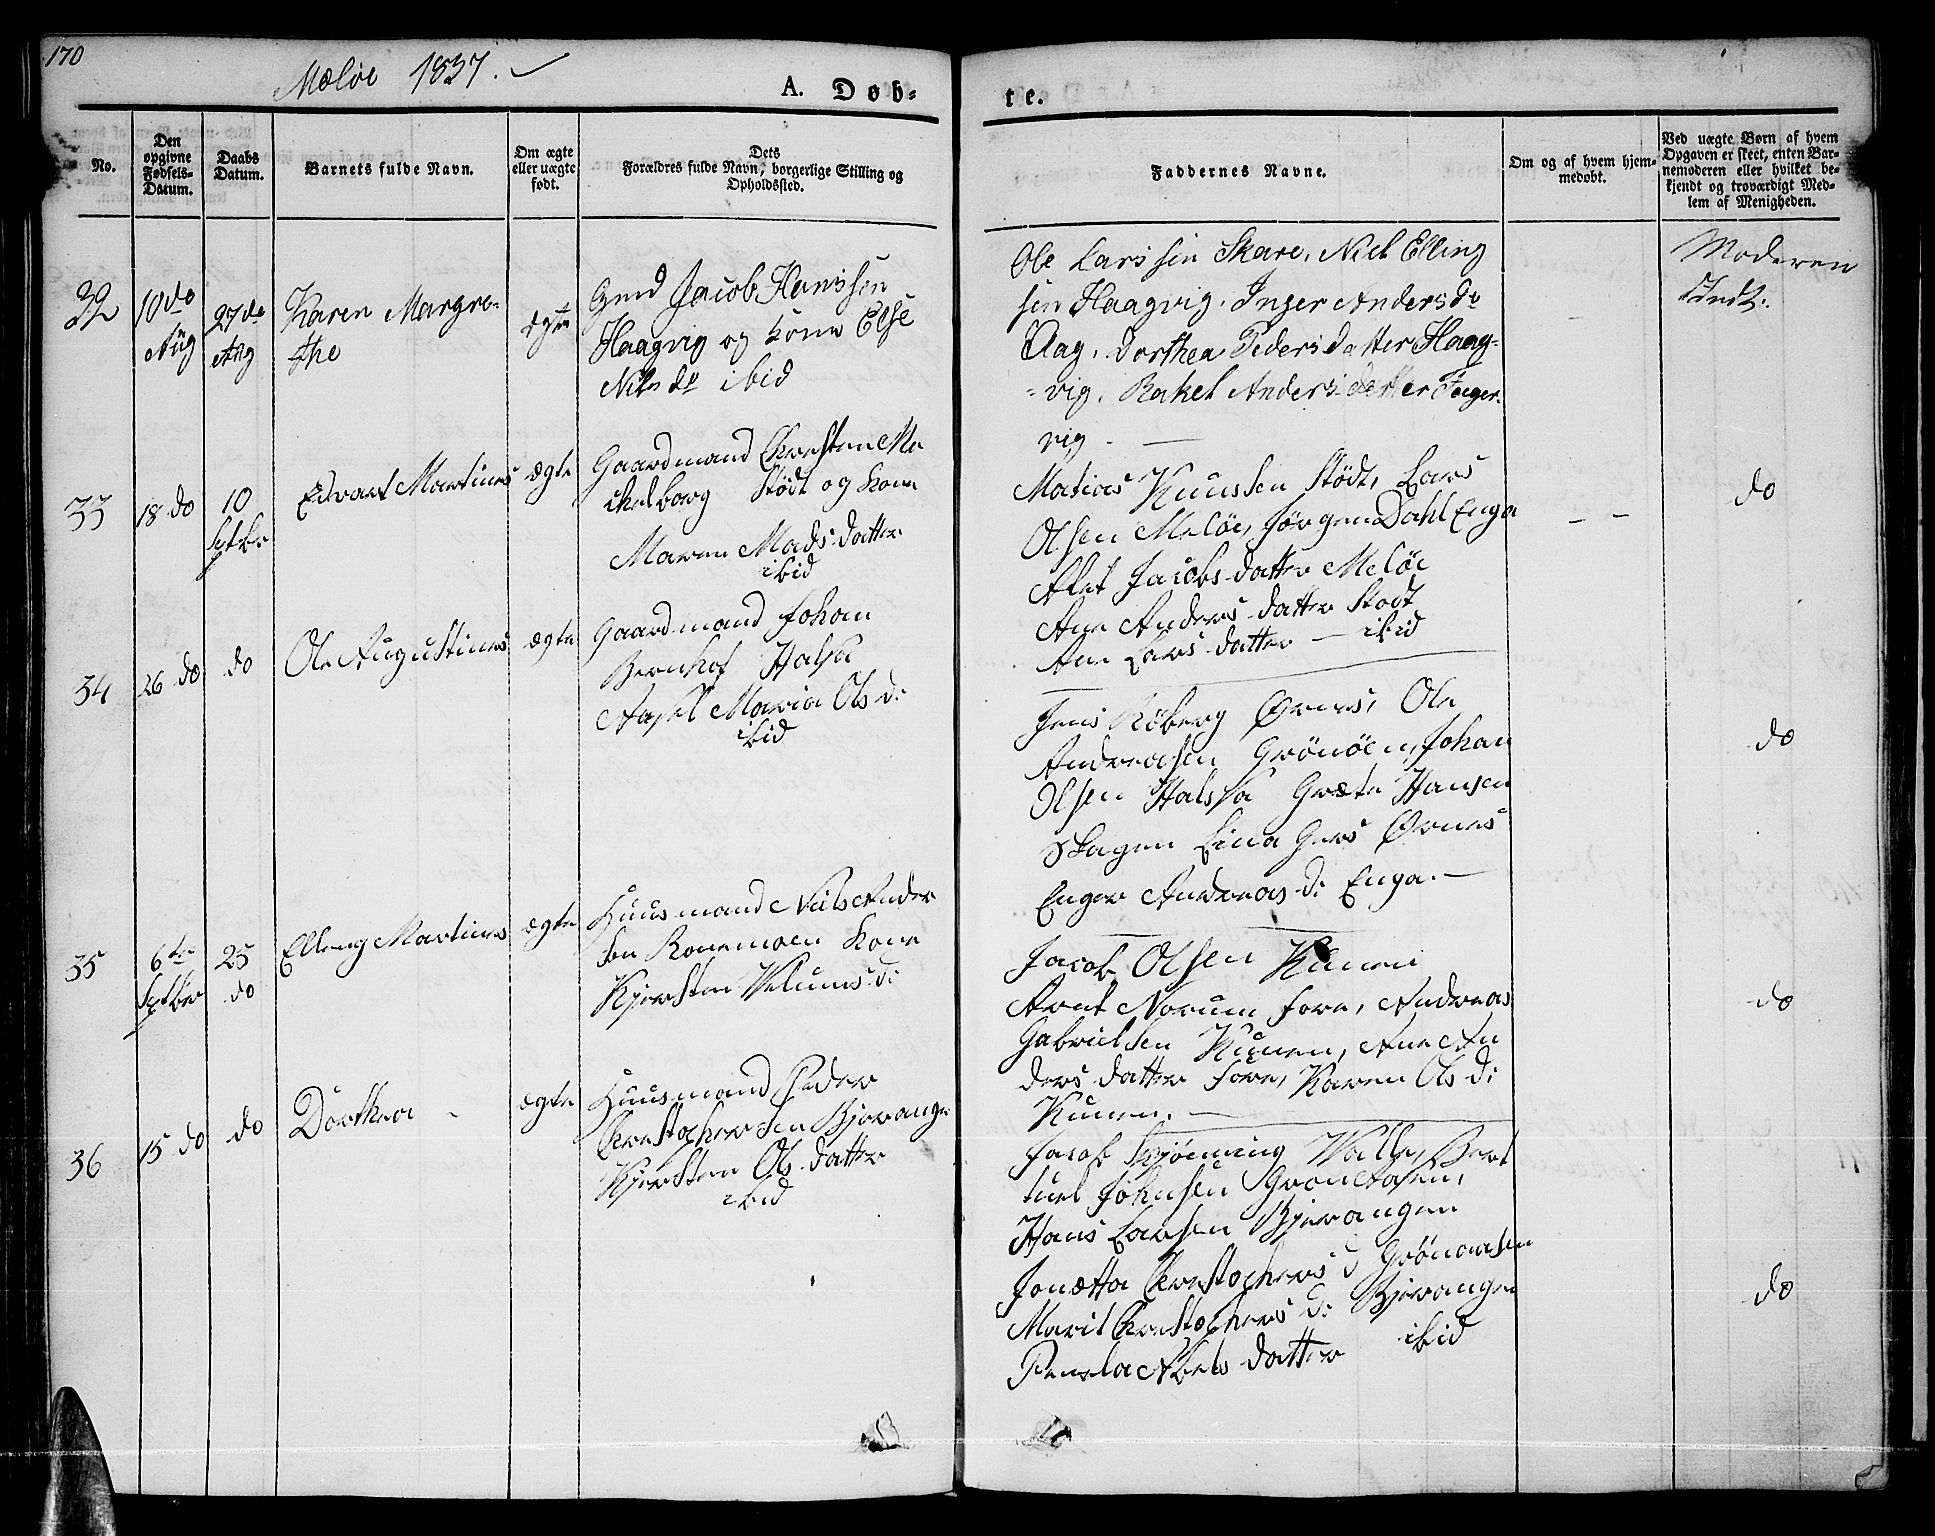 170
Meløe 1837.
A. Døb-
te.
No.
Den opgivne Fødsels-Datum.
Daabs Datum.
Barnets fulde Navn.
Om ægte eller uægte født.
Dets Forældres fulde Navn, borgerlige Stilling og Opholdssted.
Faddernes Navne.
Om og af hvem hjem-medøbt.
Ved uægte Børn af hvem Opgaven er skeet, enten Bar-nemoderen eller hvilket be-kjendt og troværdigt Med-lem af Menigheden.
32
10 do
Aug
27 do
Aug
Karen Margre-
the
ægte
Gmd Jacob Hanssen
Haagvig og Kone Else
Nils dr ibid
Ole Larssen Skare, Niel Elling
sen Haagvig, Inger Anders dr
Aag, Dorthea Pedersdatter Haag-
vig, Rakel Andersdatter Fager-
vig
Moderen
Indt.
33
18 do
10
Septbr
Edvart Martines
ægte
Gaardmand Chresten Mi
chelborg Stödt og Kone
Maren Madsdatter
ibid
Matias Knussen Stödt, Lars
Olsen Melöe, Jörgen Dahl Enga
Alet Jacobsdatter Melöe
Ane Andersdatter Stodt
Ane Larsdatter — ibid
do
34
26 do
do
Ole Augustines
ægte
Gaardmand Johan
Bernhof Halsa
Maria Ols d:
ibid
Jens Röberg Ørnes, Ole
Andreasen Grönöen, Johan
Olsen Halssa Græte Hansen
Skagen Lina Ørnes
Enger Andreas d: Enga.
do
35
6te
Septber
25
do
Elleng Martines
ægte
Huusmand Niels Ander
sen Konemoen Kone
Kjersten d:
Jacob Olsen Kunen
Arent Norum Fore, Andreas
Gabrielsen Kunen, Ane An
dersdatter Fore, Karen Ols d:
Kunen.
do
36
15 do
do
Dorthea
ægte
Huusmand Peder
Chrestophersen Bjerangen
Kjersten Olsdatter
ibid
Jacob Walle, Bert
huel Johnsen Grönaasen,
Hans Larsen Bjerangen
Jonætta Chrestophers d Grönaasen
Marit Chrestophers d: Bjerangen
Abelsdatter ibid
do